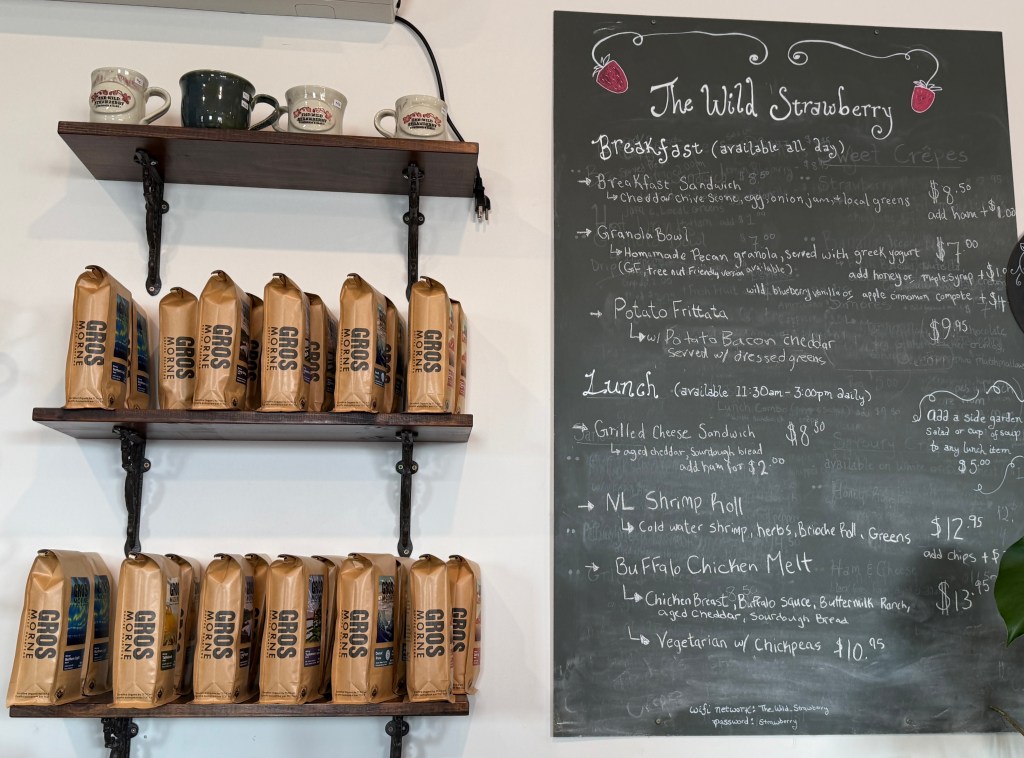 THE WILD
STRAWBERRY
THE WILD
STRAWBERRY
THE WILD
STRAWBERRY
GROS
MORNE
GROS
MORNE
GROS
MORNE
GROS
MORNE
GROS
MORNE
GROS
MORNE
GROS
MORNE
GROS
MORNE
GROS
MORNE
GROS
MORNE
GROS
MORNE
The Wild Strawberry
Breakfast (available all day)
Breakfast Sandwich $8.50
Cheddar chive scone, egg, onion jam, + local greens
add ham + $1.00
Granola Bowl $7.00
Homimade Pecan granola, served with greek yogurt
(GF, tree nut Friendly version available)
add honey or maple syrup + $1
wild blueberry vanilla or apple cinnamon compote + $4
Potato Frittata $9.95
w/ Potato Bacon cheddar
served w/ dressed greens
Lunch (available 11:30am - 3:00pm daily)
add a side garden
salad or cup of soup
to any lunch item
$5.00
Grilled Cheese Sandwich $8.50
aged cheddar, sourdough bread
add ham for $2.00
NL Shrimp Roll
Cold water shrimp, herbs, Brioche Roll, Greens $12.95
add chips + $
Buffalo Chicken Melt
Chicken Breast, Buffalo sauce, Buttermilk Ranch, $13.95
aged Cheddar, Sourdough Bread
Vegetarian w/ Chickpeas $10.95
wifi network: The Wild Strawberry
password: strawberry